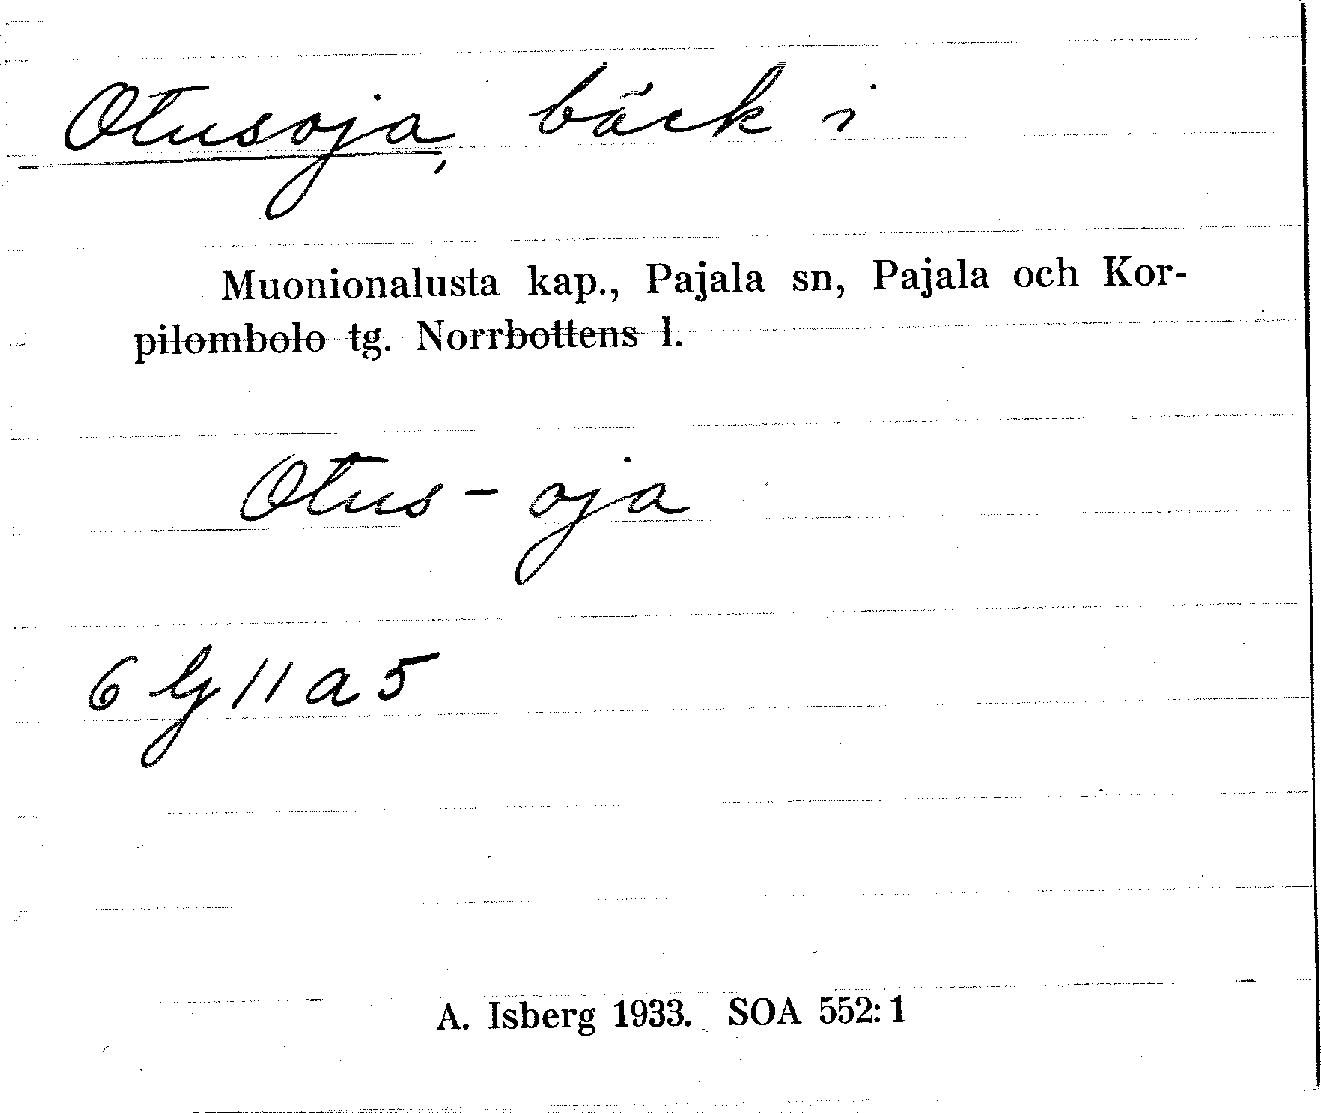 Otusoja, bäck i
Muonionalusta kap., Pajala sn, Pajala och Kor-
pilombolo tg. Norrbottens l.
Otus - oja
6 lj 11 a 5
A. Isberg 1933. SOA 552:1